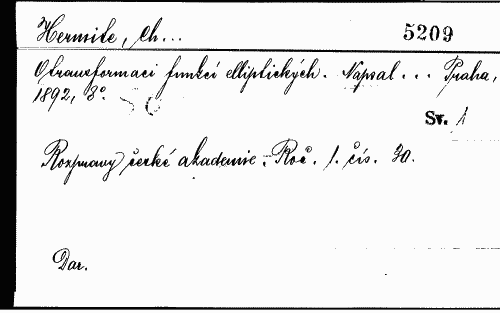 Hermite, Ch... 5209
O transformaci funkcí elliptických. Napsal... Praha,
1892, 8°.
Sv. 1
Rozpravy české akademie. Roč. 1. čís. 30.
Dar.